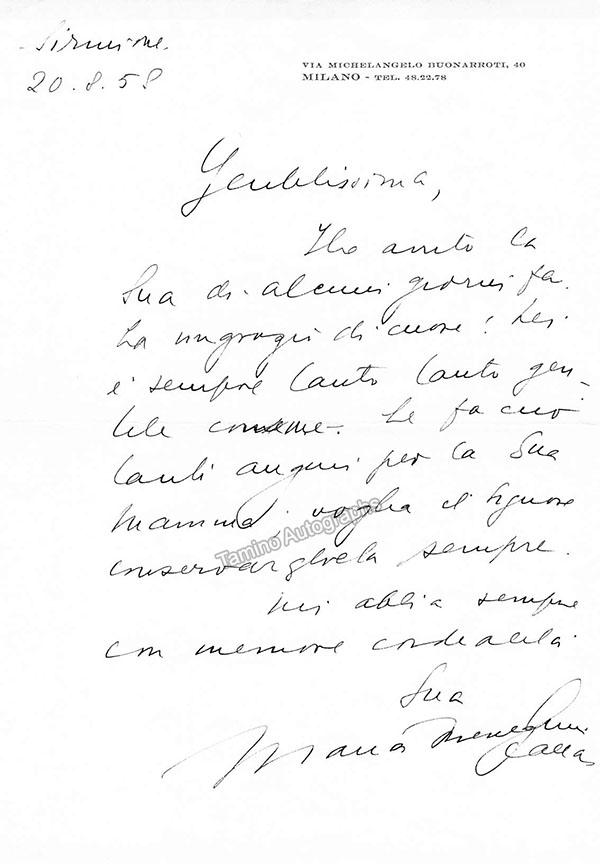 Sirmione.
20.8.58
VIA MICHELANGELO BUONARROTI, 40
MILANO - TEL. 48.22.78
Gentilissima,
Ho avuto la
Sua di alcuni giorni fa.
La ringrazio di cuore! Lei
è sempre tanto tanto gen-
tile con me. Le faccio
tanti auguri per la Sua
Mamma, voglia il Signore
conservargliela sempre.
Mi abbia sempre
con memore cordialità
Sua
Maria Meneghini
Callas
Tamino Autographs